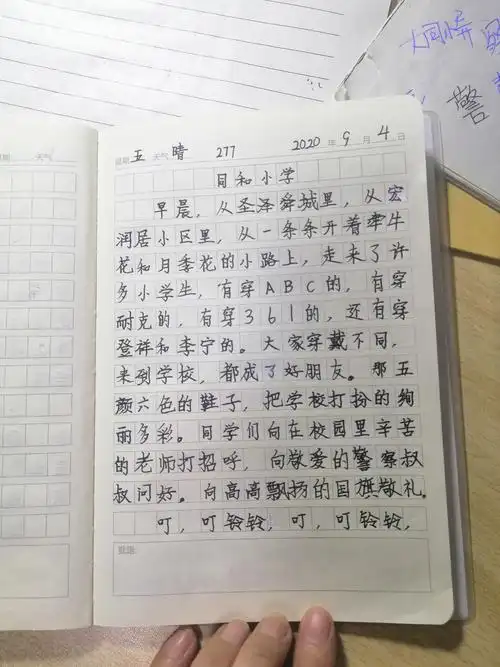 星期 五 天气 晴 277 2020 年 9 月 4 日
同和小学
早晨，从圣泽舜城里，从宏
润居小区里，从一条条开着牵牛
花和月季花的小路上，走来了许
多小学生，有穿ABC的，有穿
耐克的，有穿361的，还有穿
登祥和李宁的。大家穿戴不同，
来到学校，都成了好朋友。那五
颜六色的鞋子，把学校打扮的绚
丽多彩。同学们向在校园里辛苦
的老师打招呼，向敬爱的警察叔
叔问好。向高高飘扬的国旗敬礼。
叮，叮铃铃，叮，叮铃铃，
批语:
星期 天气
警